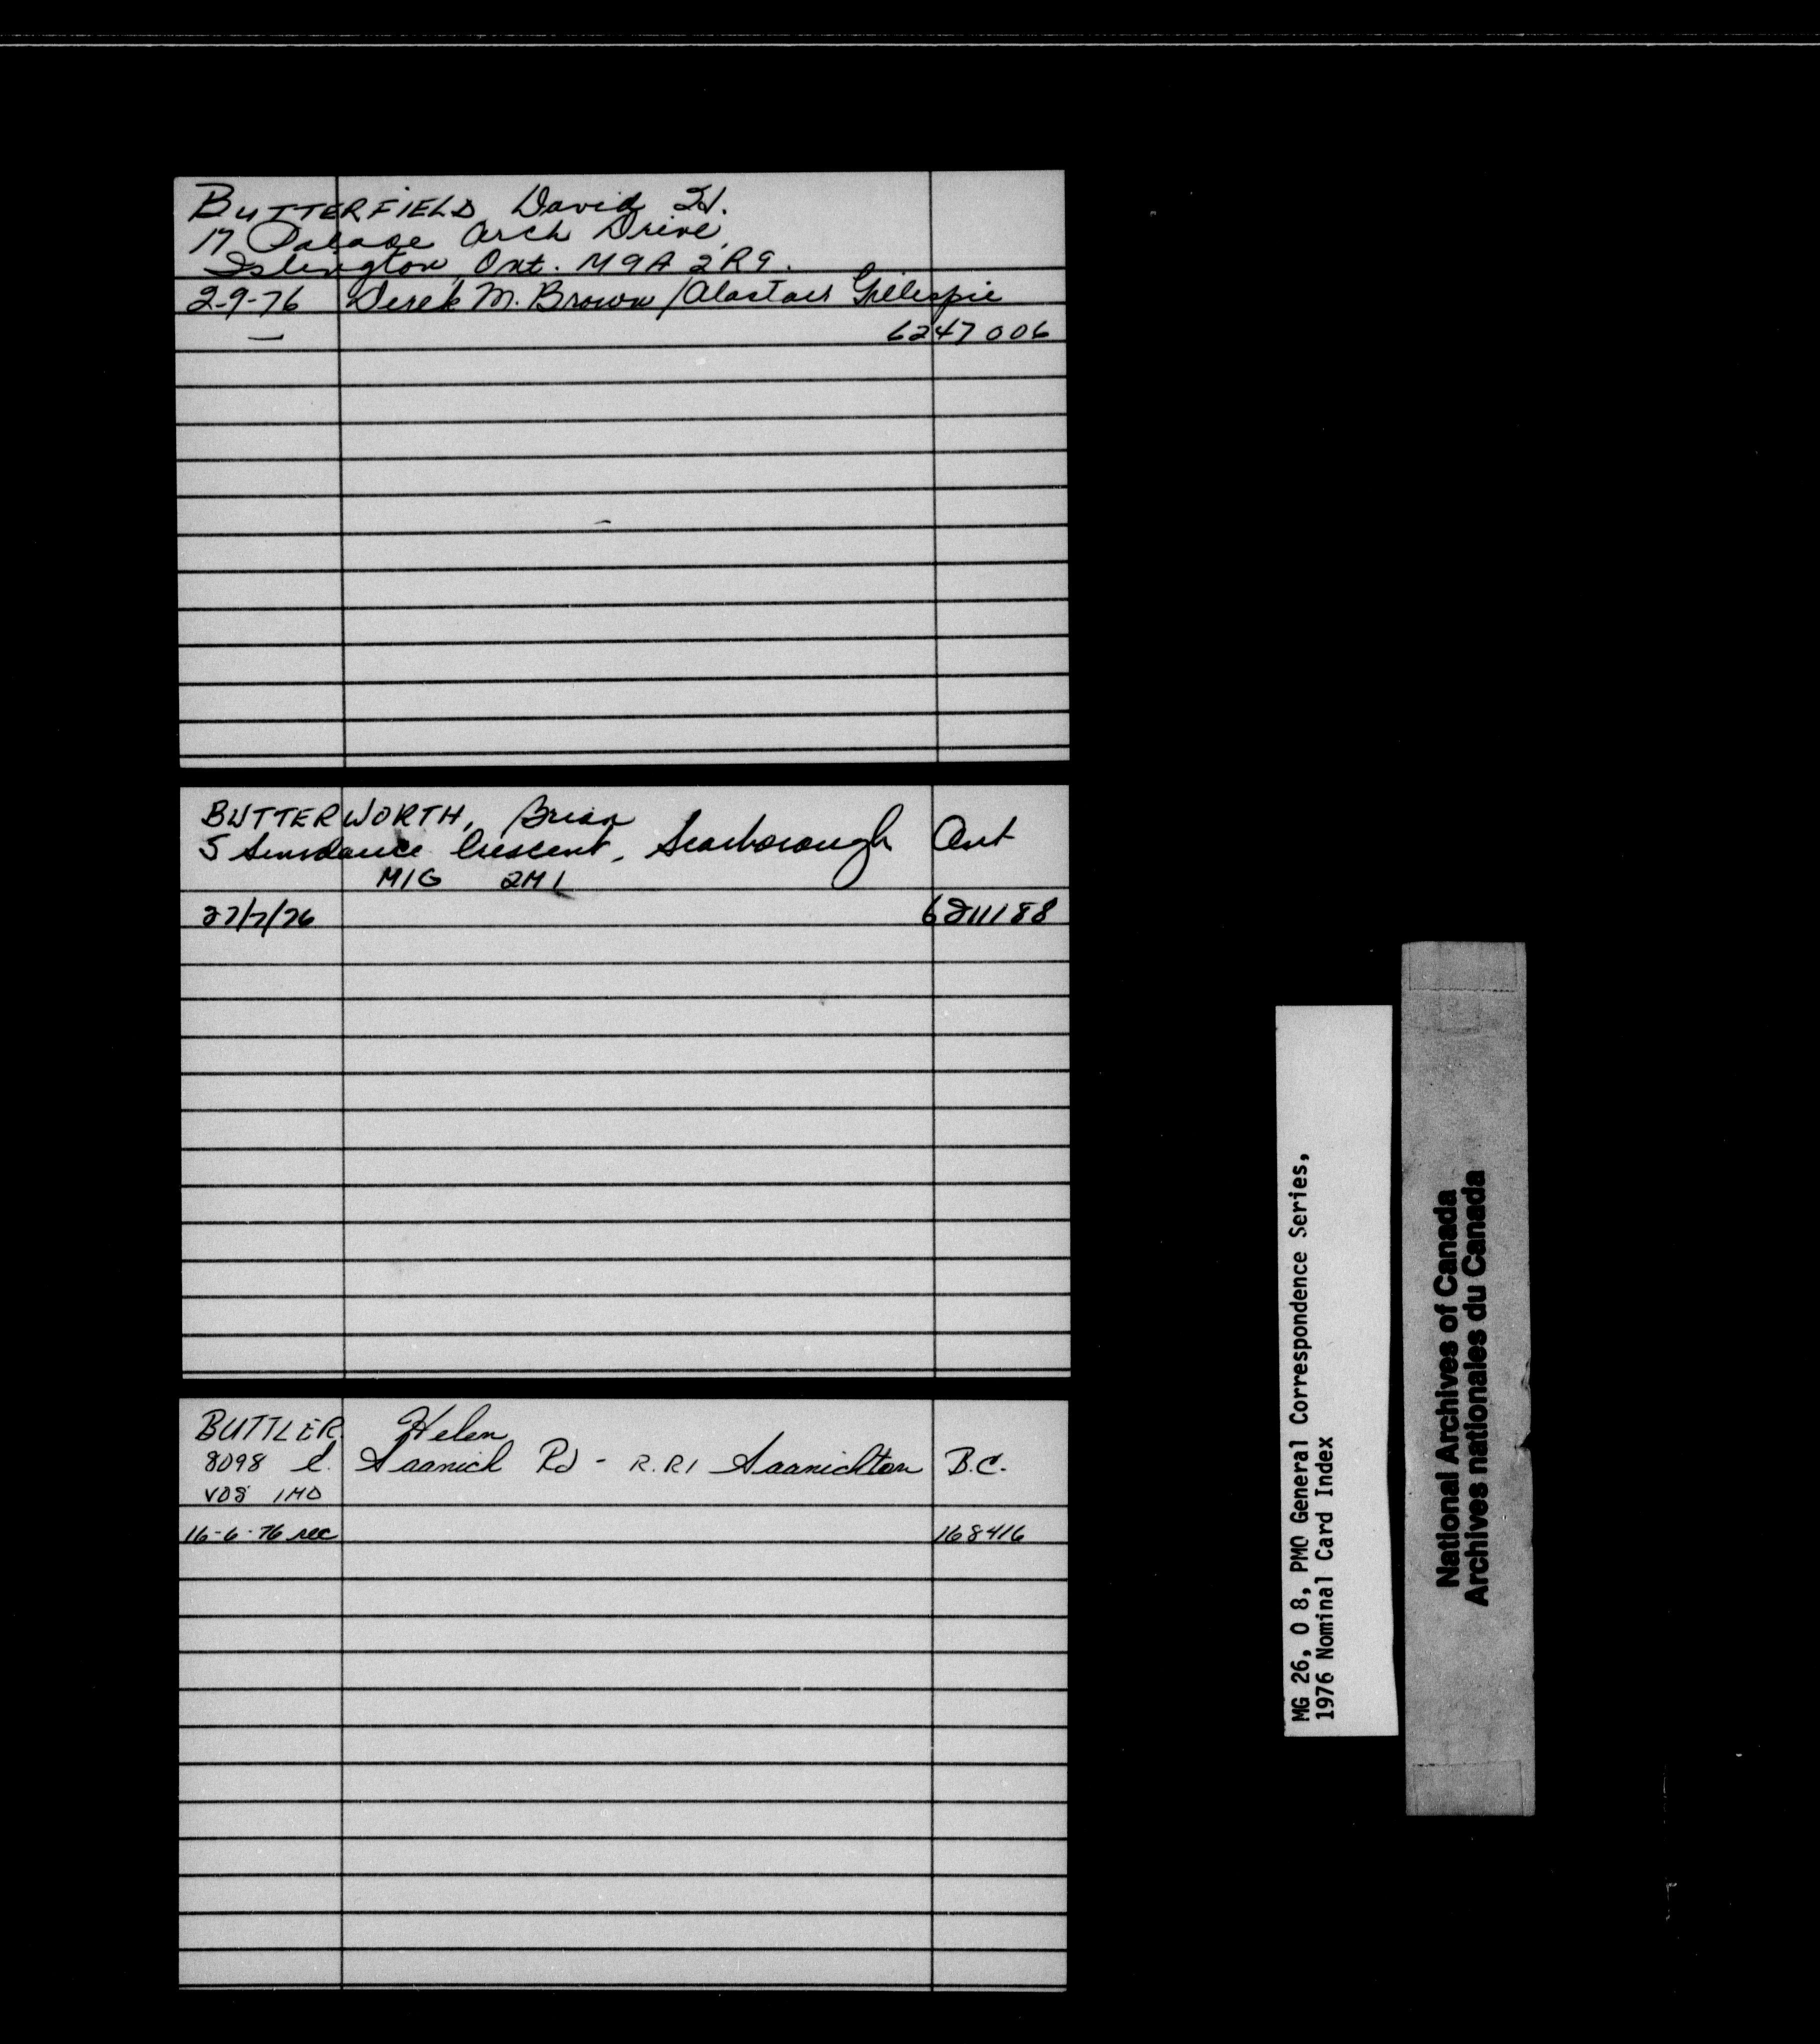 BUTTERFIELD David H.
17 Palace Arch Drive,
Islington, Ont. M9A 2R9.
2-9-76 Derek M. Brown / Alastair Gillespie
— 6247006
BUTTERWORTH, Brian
5 Sundance Crescent, Scarborough Ont
M1G 2M1
27/7/76 6211188
BUTTLER Helen
8098 E. Saanich Rd - R.R1 Saanichton B.C.
V0S 1M0
16-6-76 rec 168416
MG 26, O 8, PMO General Correspondence Series,
1976 Nominal Card Index
National Archives of Canada
Archives nationales du Canada